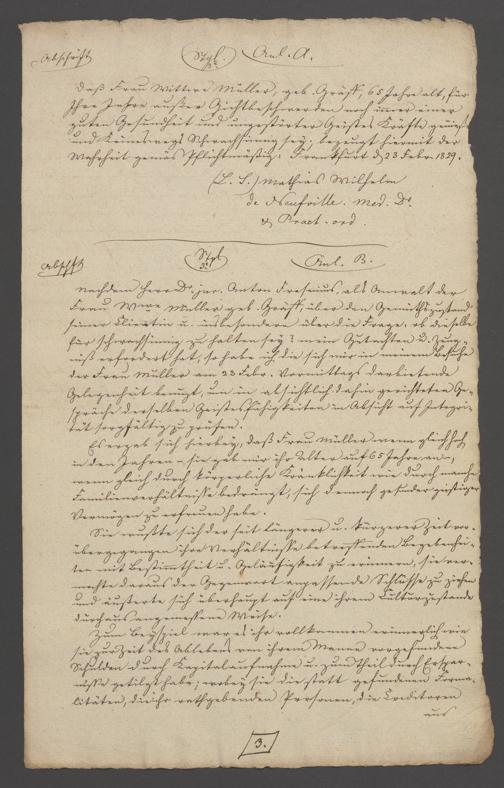 Abschrift Stpl. Anl. A.
Daß Frau Wittwe Müller, geb. Gräff, 65 Jahre alt, für
Ihre Jahre außer Gichtbeschwerden noch immer einer
guten Gesundheit und ungestörter Geistes Kräfte genieße
und keineswegs Schwachsinnig sey; bezeugt hiermit der
Wahrheit gemäs Pflichtmäßig: Frankfurt d 23 Febr. 1829.
(L. S.) Mathias Wilhelm
de Neufville. Med. Dr.
& Pract. ord.
Abschft Stpl Anl. B.
Nachdem Herr Dr. jur. Anton Fresenius, als Anwalt der
Frau Wwe Müller geb. Gräff, über den Gemüthszustand
seiner Clientin u. insbesondere über die Frage, ob dieselbe
für schwachsinnig zu halten sey? mein Gutachten u. Zeug-
niß erfordert hat, so habe ich die sich mir in meinem Besuche
der Frau Müller am 23 Febr. Vormittags darbietende
Gelegenheit benuzt, um in absichtlich dahin gerichteten Ge-
spräche derselben Geistesfähigkeiten in Absicht auf Integri-
tät sorgfältig zu prüfen.
Es ergab sich hierbey, daß Frau Müller wenn gleich hoch
in den Jahren – sie gab mir ihr Alter auf 65 Jahre an –,
wenn gleich durch körperliche Kränklichkeit wie durch manche
Familienverhältnisse bedrängt, sich dennoch gesunder geistiger
Vermögen zu erfreuen habe.
Sie wußte sich der seit längerer u. kürzerer Zeit vor-
übergegangen ihre Verhältnisse betreffenden Begebenhei-
ten mit Bestimmtheit u. Geläufigkeit zu erinnern, sie ver-
mochte daraus der Gegenwart anpassende Schlüsse zu ziehen
und äusserte sich überhaupt auf eine ihrem Culturzustande
durchaus angemessene Weise.
Zum Beyspiel war es ihr vollkommen erinnerlich wie
sie zur Zeit des Ablebens von ihrem Manne vorgefundene
Schulden durch Kapitalaufnahme u. zum Theil durch Erspar-
nisse getilgt habe; wobey sie die statt gefundenen Forma-
litäten, die ihr rathgebenden Personen, die Creditoren
und
3.